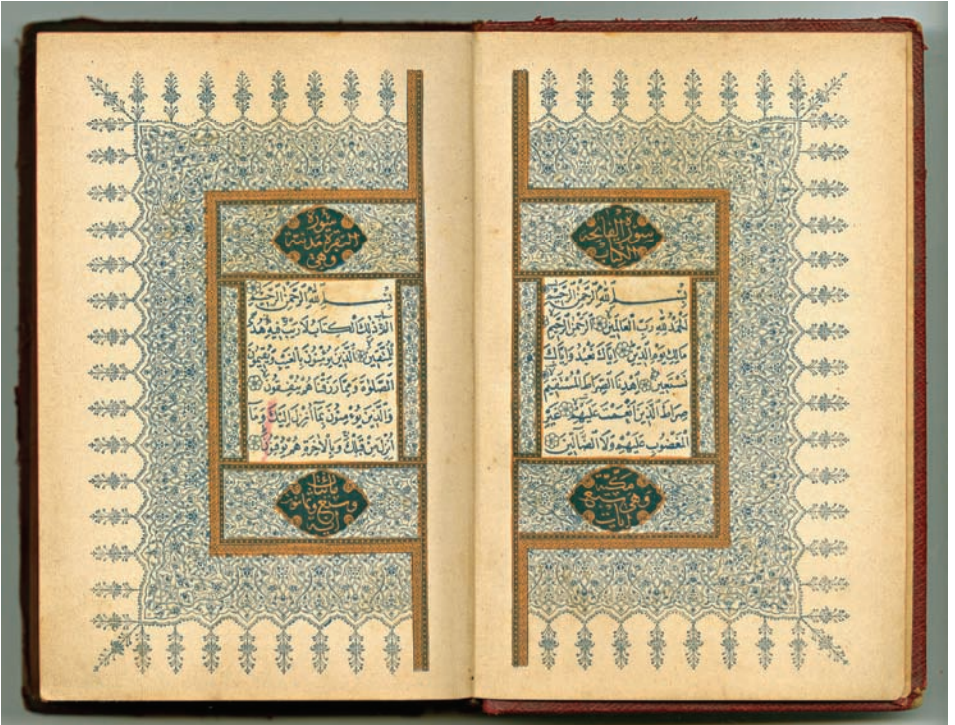 سورة فاتحة
الكتاب
بسم الله الرحمن الرحيم
الحمد لله رب العالمين الرحمن الرحيم
مالك يوم الدين اياك نعبد واياك
نستعين اهدنا الصراط المستقيم
صراط الذين انعمت عليهم غير
المغضوب عليهم ولا الضالين
مكية
وهي سبع
آيات
سورة
البقرة مدنية
وهي
بسم الله الرحمن الرحيم
الم ذلك الكتاب لا ريب فيه هدى
للمتقين الذين يؤمنون بالغيب ويقيمون
الصلوة ومما رزقناهم ينفقون
والذين يؤمنون بما انزل اليك وما
انزل من قبلك وبالآخرة هم يوقنون
مائتان
وسبع وثمانون
آية